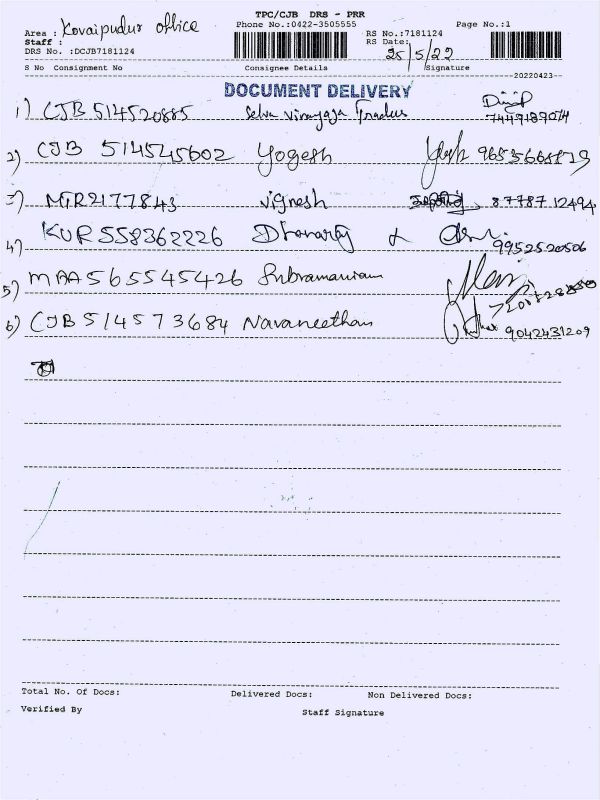 TPC/CJB DRS - PRR
Area : Kovaipudur office Phone No.:0422-3505555 Page No.:1
Staff : RS No.:7181124
DRS No. :DCJB7181124 RS Date: 25/5/22
S No Consignment No Consignee Details Signature
20220423
DOCUMENT DELIVERY
1) CJB 514520885 Selva vinayaga Traders 7449189014
2) CJB 514545602 Yogesh
3) MTR2177843 Vignesh 87787 12494
4) KUR558362226 & 9952520506
5) MAA565545426 Subramaniam
6) CJB514573684 Navaneethan 9042431209
Total No. Of Docs: Delivered Docs: Non Delivered Docs:
Verified By Staff Signature